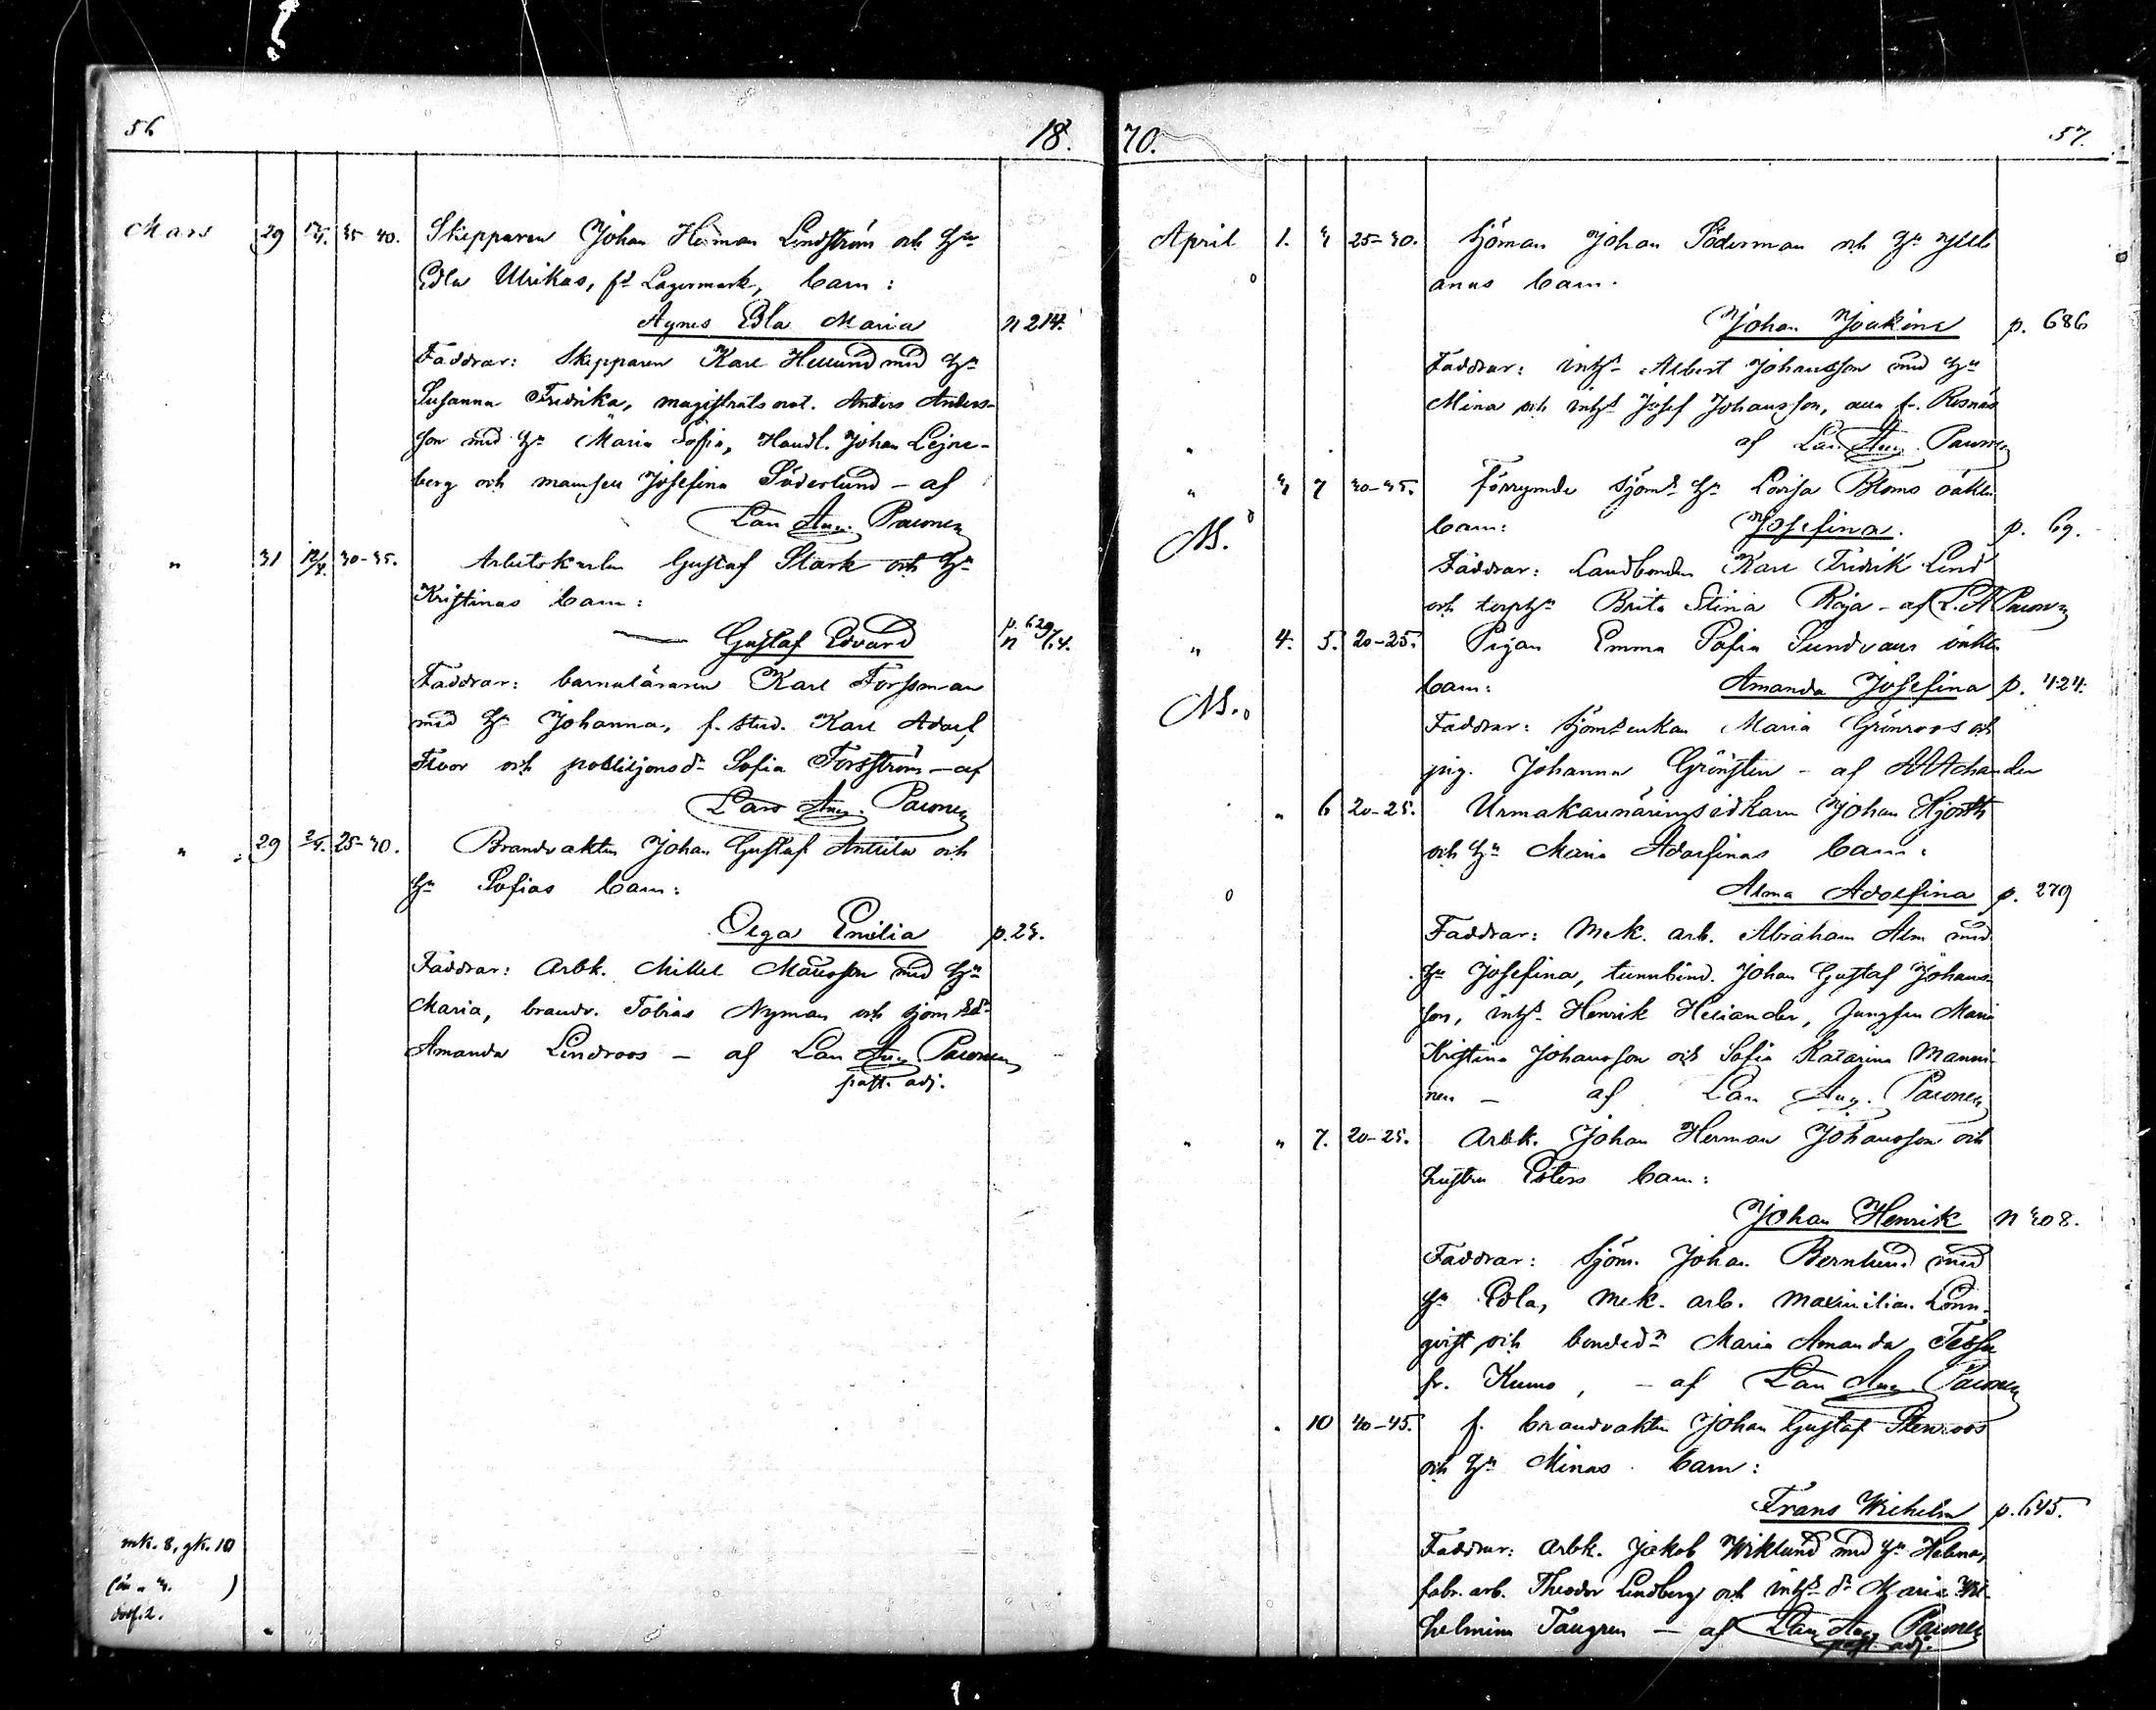 56
18.
Mars 29 17/4. 35-40. Skepparen Johan Herman Lindström och hu
Edla Ulrikas, fd Lagermark, barn:
Agnes Edla Maria n 214.
Faddrar: Skepparen Karl Hellund med hu
Susanna Fredrika, magistratsrot. Anders Anders-
son med hu Maria Sofia, Handl. Johan Lejne-
berg och mamsell Josefina Söderlund – af
Lars Aug. Paconen
" 31 12/4. 30-35. Arbetskarlen Gustaf Stark och hu
Kristinas barn:
p. 629
Gustaf Edvard n 7/4.
Faddrar: barnaläraren Karl Forssman
med hu Johanna, f. stud. Karl Adolf
Floor och postiljonsdr Sofia Forsström – af
Lars Aug. Paconen
" 29 2/4. 25-30. Brandvakten Johan Gustaf Anttila och
hu Sofias barn:
Olga Emilia p. 23.
Faddrar: Arbk. Mikkel Mattsson med hu
Maria, brandv. Tobias Nyman och sjöm.sdr
Amanda Lindroos – af Lars Aug. Paconen
past. adj.
mk. 8, qk. 10
70.
57.
April 1. 3 25-30. Sjöman Johan Söderman och hu Juli
anas barn.
Johan Joakim p. 686
Faddrar: inhs. Albert Johansson med hu
Mina och inhs Josef Johansson, alla fr. Rosnäs
af Lars Aug. Paconen
" 3 7 30-35. Förrymde sjömns hu Lovisa Bloms oäkta
barn: Josefina. p. 69.
Faddrar: Landbonden Karl Fredrik Lind
och torphu Brita Stina Röja – af L. A Paconen
" 4. 5. 20-25. Pigan Emma Sofia Sundvalls oäkta
barn: Amanda Josefina p. 424.
Faddrar: Sjömsenkan Maria Grönroos och
pig. Johanna Grönsten – af
" 6 20-25. Urmakarinäringsidkarn Johan Hjorth
och hu Maria Adolfinas barn:
Alma Adolfina p. 279
Faddrar: Mek. arb. Abraham Alm med
hu Josefina, tunnbind. Johan Gustaf Johans-
son, inhs. Henrik Heliander, Jungfru Maria
Kristina Johansson och Sofia Katarina Manni-
nen – af Lars Aug. Paconen
" " 7. 20-25. Arbk. Johan Herman Johansson och
hustru Esters barn:
Johan Henrik n 308.
Faddrar: Sjöm. Johan Bernlund med
hu Edla, Mek. arb. Maximilian Lönn-
qvist, och bondedr Maria Amanda
fr. Kumo, – af Lars Aug. Paconen
" 10 40-45. f. brandvakten Johan Gustaf Stenroos
och hu Minas barn:
Frans Wilhelm p. 645.
Faddrar: Arbk. Jakob Wiklund med hu Helena,
fabr. arb. Theodor Lindberg och inhs dr Maria Wil-
helmina Tangren – af Lars Aug Paconen
past. adj.